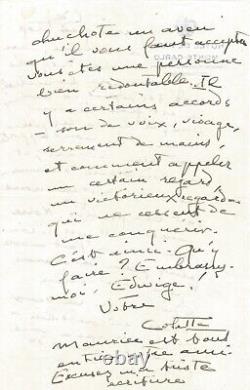 chuchote un aveu
qu'il vous faut accepter
vous êtes une personne
bien redoutable. Il
y a certains accords
- son de voix, visage,
serrement de mains,
et comment appeler
un certain regard,
un victorieux regard
qui ne cessent de
me conquérir.
C'est ainsi. Qu'y
faire? Embrassez-
moi, Edwige!
Votre
Colette
Maurice est tout
Excusez ma triste
écriture